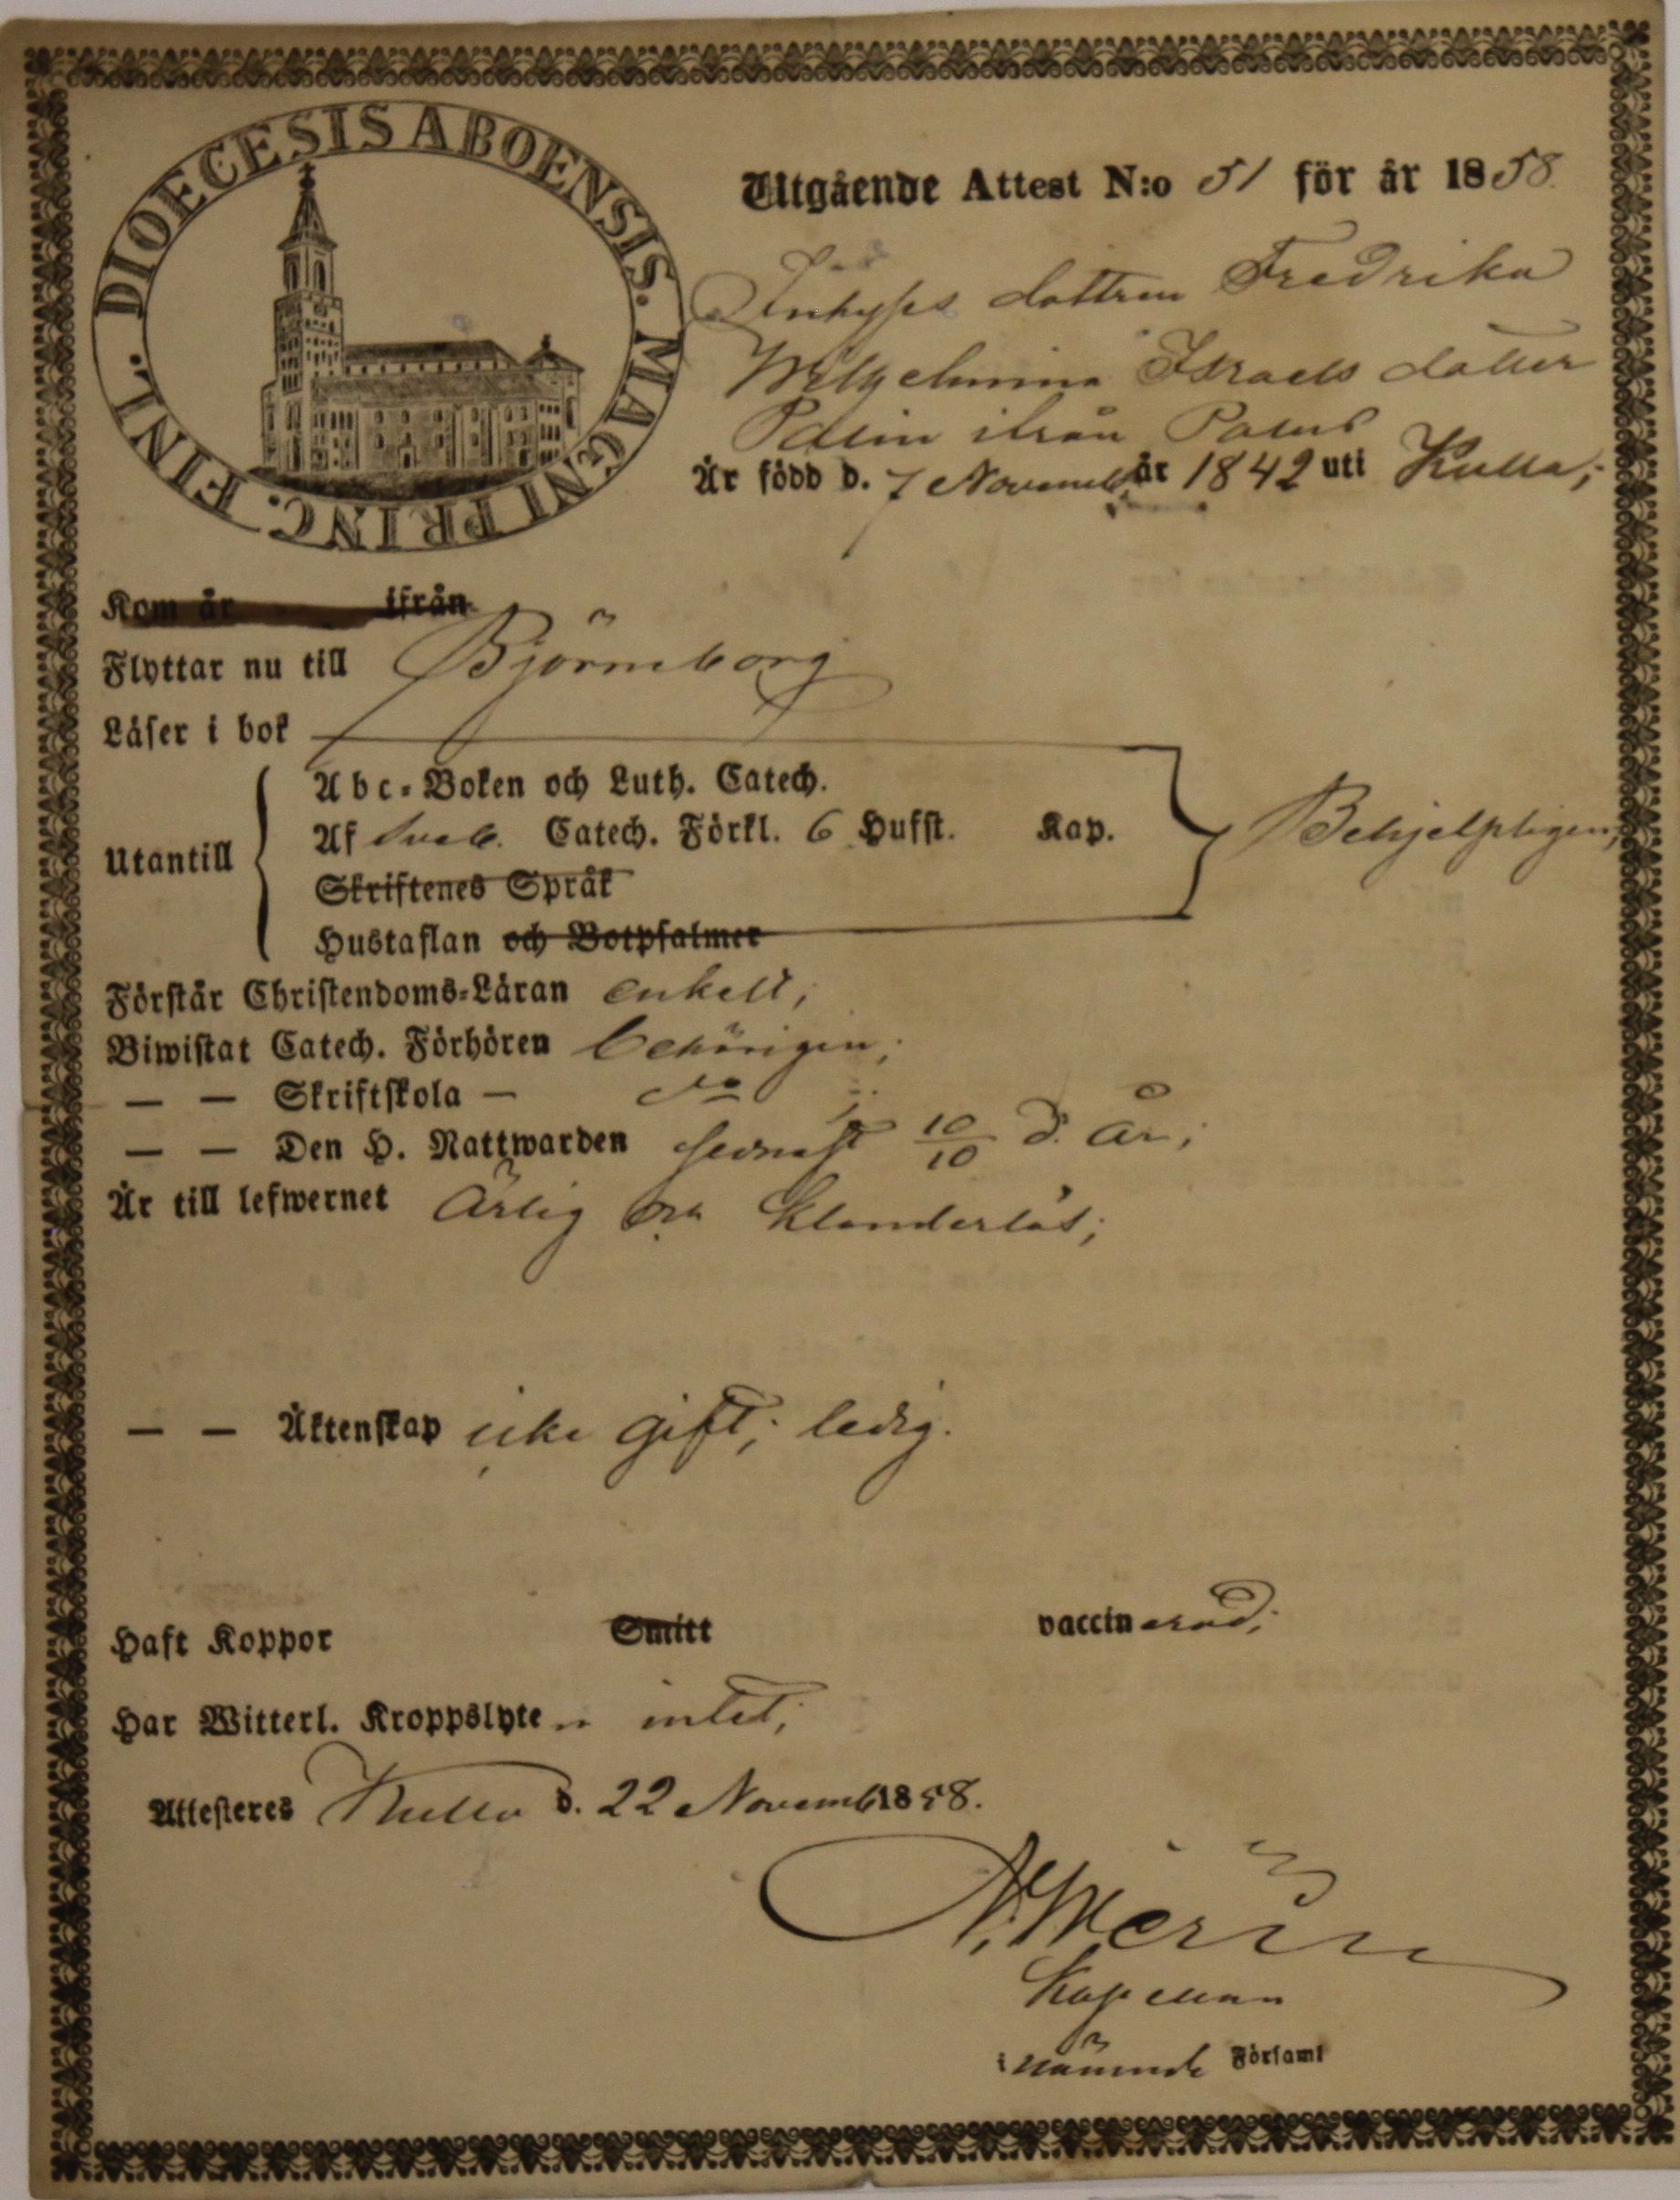 DIOECESIS ABOENSIS. MAGNI PRINC. FINL.
Utgående Attest N:o 51 för år 1858.
Inhyses dottren Fredrika
Wilhelmina Israels dotter
Palin ifrån Palus
Är född d. 7 Novemb. år 1842 uti Kulla;
Kom år ifrån
Flyttar nu till Björneborg
Läser i bok
Abc-Boken och Luth. Catech.
Utantill Af Sveb. Catech. Förkl. 6 Hufst. Kap. Behjelpligen;
Skriftenes Språk
Hustaflan och Botpsalmer
Förstår Christendoms-Läran enkelt;
Biwistat Catech. Förhören behörigen;
— — Skriftskola — do
— — Den H. Nattwarden sednast 10/10 d. år;
Är till lefwernet Ärlig och klanderlös;
— — Äktenskap icke gift; ledig.
Haft Koppor Smitt vaccinerad;
Har Witterl. Kroppslyte intet;
Attesteres Kulla d. 22 Novemb 1858.
Kapellan
i nämnde Församl